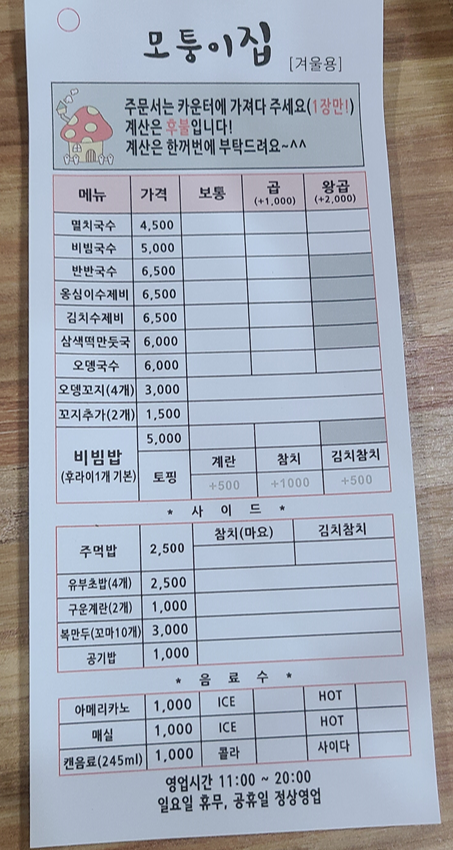 모퉁이집 [겨울용]
주문서는 카운터에 가져다 주세요(1장만!)
계산은 후불입니다!
계산은 한꺼번에 부탁드려요~^^
메뉴 가격 보통 곱 (+1,000) 왕곱 (+2,000)
멸치국수 4,500
비빔국수 5,000
반반국수 6,500
옹심이수제비 6,500
김치수제비 6,500
삼색떡만둣국 6,000
오뎅국수 6,000
오뎅꼬지(4개) 3,000
꼬지추가(2개) 1,500
비빔밥 (후라이1개 기본) 5,000
토핑 계란 참치 김치참치
+500 +1000 +500
* 사 이 드 *
주먹밥 2,500 참치(마요) 김치참치
유부초밥(4개) 2,500
구운계란(2개) 1,000
복만두(꼬마10개) 3,000
공기밥 1,000
* 음 료 수 *
아메리카노 1,000 ICE HOT
매실 1,000 ICE HOT
캔음료(245ml) 1,000 콜라 사이다
영업시간 11:00 ~ 20:00
일요일 휴무, 공휴일 정상영업